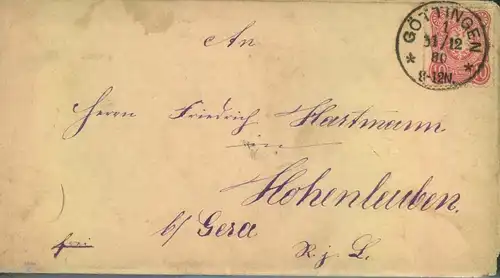 GÖTTINGEN
1
31/12
80
8-12N.
An
Herrn Friedrich Hartmann.
in
Hohenleuben.
b/ Gera
R. j. L.
frei